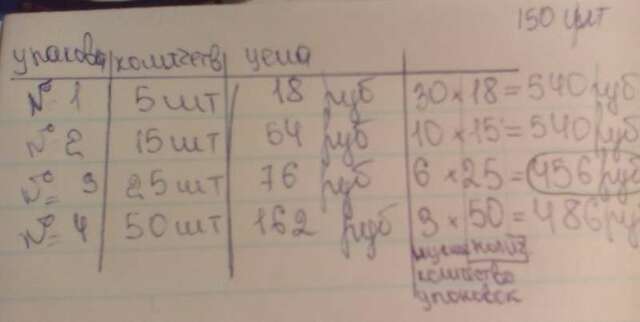 150 шт
упаковка количеств цена
№ 1 5 шт 18 руб 30 × 18 = 540 руб
№ 2 15 шт 54 руб 10 × 15 = 540 руб
№ 3 25 шт 76 руб 6 × 25 = 456 руб
№ 4 50 шт 162 руб 3 × 50 = 486 ру
количество
упаковок